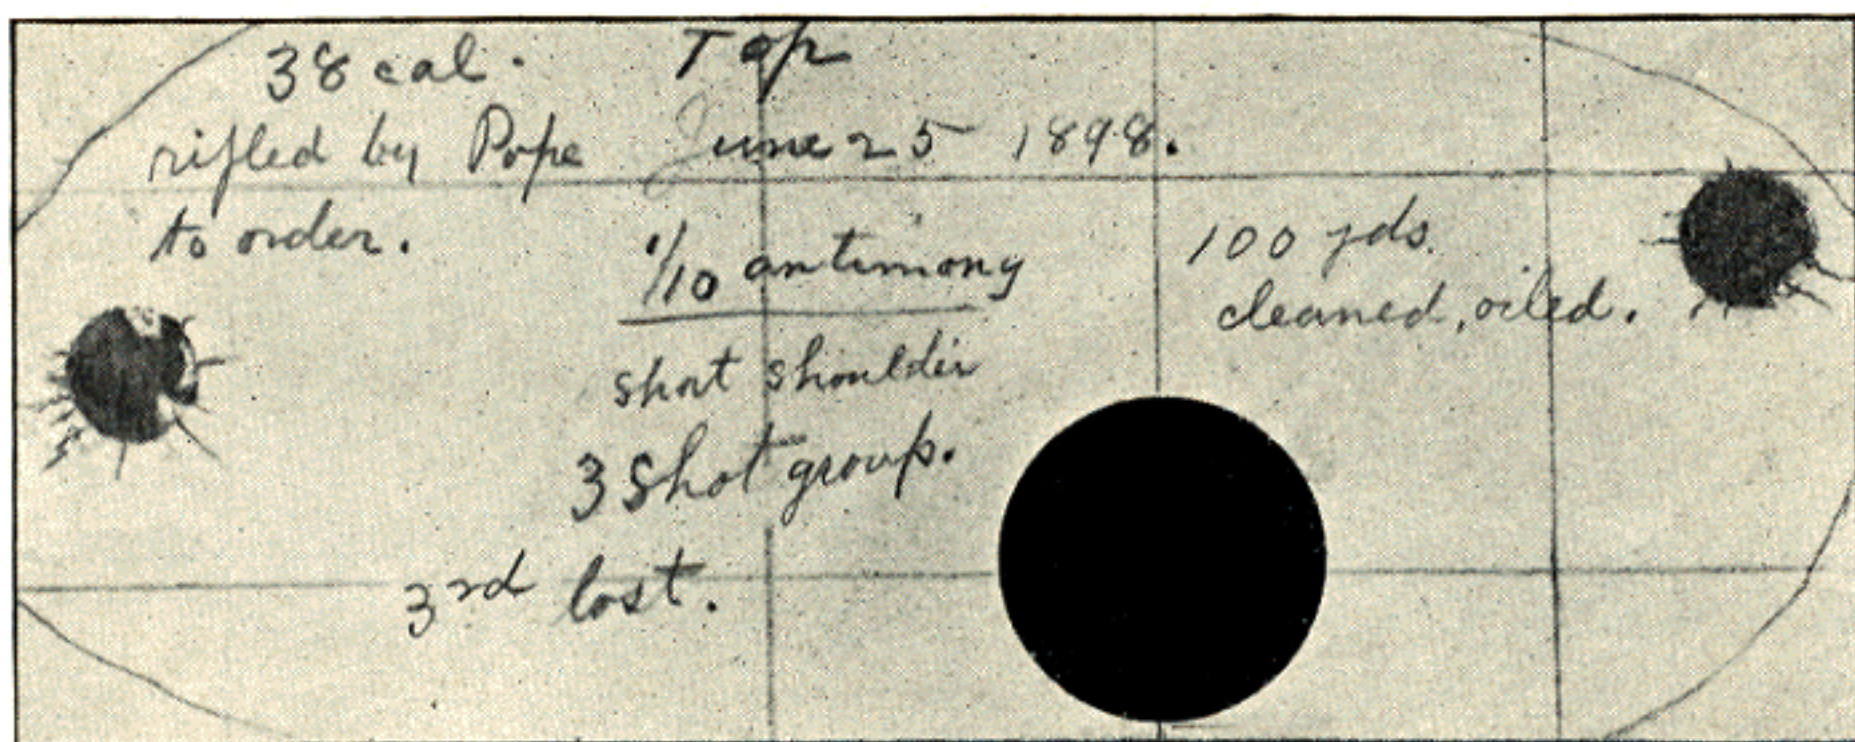 38 cal. Top
rifled by Pope June 25 1898.
to order.
1/10 antimony
short shoulder
3 Shot group.
3rd lost.
100 yds.
cleaned, oiled.